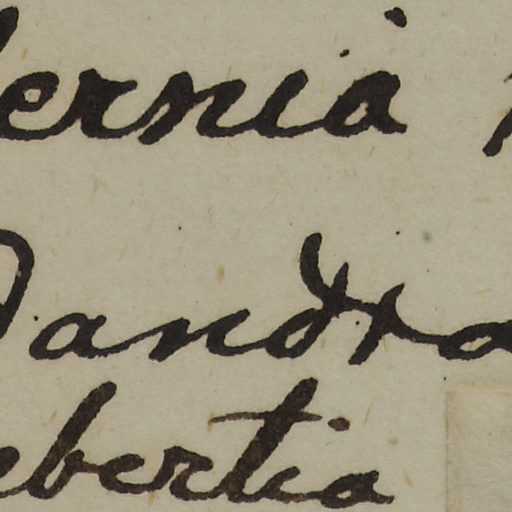 ernia
andra
ebertia